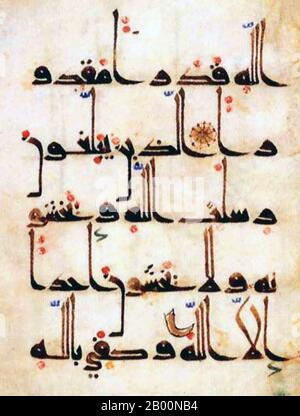 الله قدرا مقدو
را الذين يبلغون
رسلت الله ويخشو
نه ولا يخشون احدا
الا الله وكفى بالله
alamy - 2B00NB4